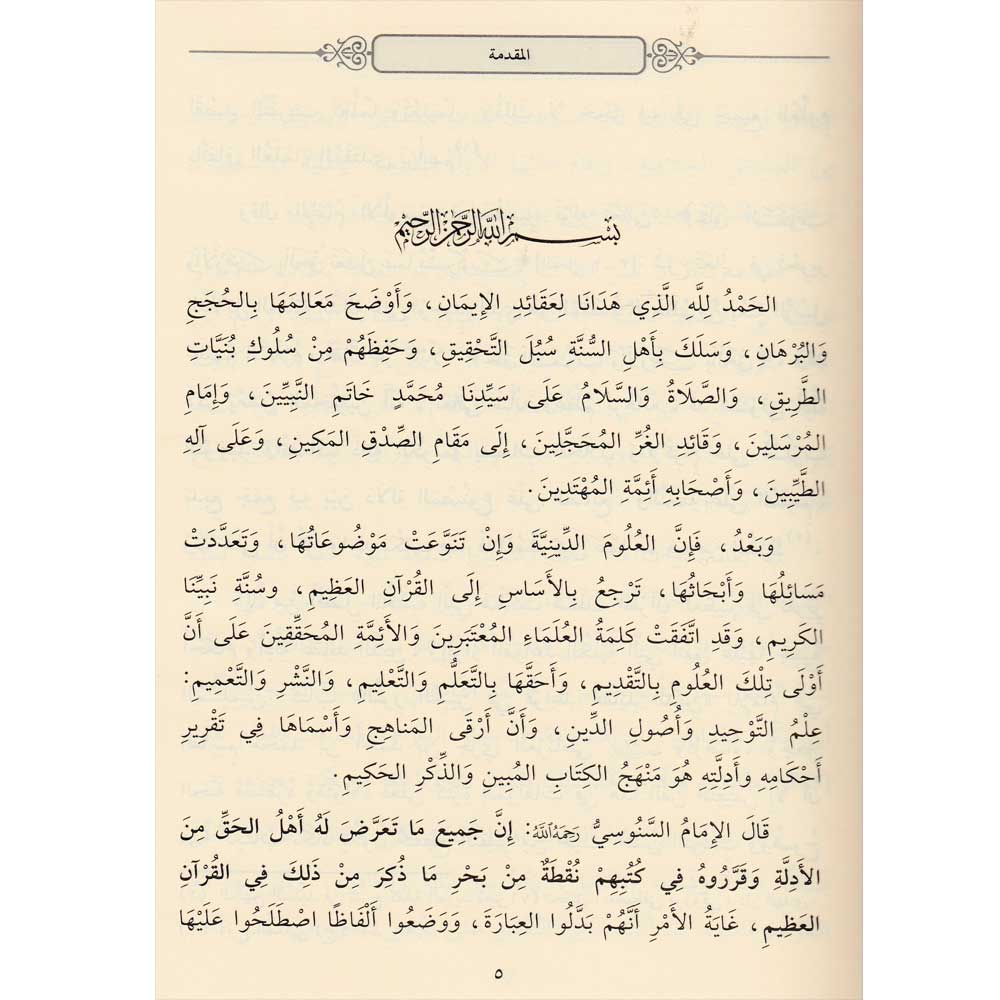 المقدمة
بِسْمِ اللَّهِ الرَّحْمَنِ الرَّحِيمِ
الحَمْدُ لِلَّهِ الَّذِي هَدَانَا لِعَقَائِدِ الإِيمَانِ، وَأَوْضَحَ مَعَالِمَهَا بِالحُجَجِ
وَالبُرْهَانِ، وَسَلَكَ بِأَهْلِ السُّنَّةِ سُبُلَ التَّحْقِيقِ، وَحَفِظَهُمْ مِنْ سُلُوكِ بُنَيَّاتِ
الطَّرِيقِ، وَالصَّلَاةُ وَالسَّلَامُ عَلَى سَيِّدِنَا مُحَمَّدٍ خَاتَمِ النَّبِيِّينَ، وَإِمَامِ
المُرْسَلِينَ، وَقَائِدِ الغُرِّ المُحَجَّلِينَ، إِلَى مَقَامِ الصِّدْقِ المَكِينِ، وَعَلَى آلِهِ
الطَّيِّبِينَ، وَأَصْحَابِهِ أَئِمَّةِ المُهْتَدِينَ.
وَبَعْدُ، فَإِنَّ العُلُومَ الدِّينِيَّةَ وَإِنْ تَنَوَّعَتْ مَوْضُوعَاتُهَا، وَتَعَدَّدَتْ
مَسَائِلُهَا وَأَبْحَاثُهَا، تَرْجِعُ بِالأَسَاسِ إِلَى القُرْآنِ العَظِيمِ، وسُنَّة نَبِيِّنَا
الكَرِيمِ، وَقَدِ اتَّفَقَتْ كَلِمَةُ العُلَمَاءِ المُعْتَبَرِينَ وَالأَئِمَّةِ المُحَقِّقِينَ عَلَى أَنَّ
أَوْلَى تِلْكَ العُلُومِ بِالتَّقْدِيمِ، وَأَحَقَّهَا بِالتَّعَلُّمِ وَالتَّعْلِيمِ، وَالنَّشْرِ وَالتَّعْمِيمِ:
عِلْمُ التَّوْحِيدِ وَأُصُولِ الدِّينِ، وَأَنَّ أَرْقَى المَنَاهِجِ وَأَسْمَاهَا فِي تَقْرِيرِ
أَحْكَامِهِ وأَدِلَّتِهِ هُوَ مَنْهَجُ الكِتَابِ المُبِينِ وَالذِّكْرِ الحَكِيمِ.
قَالَ الإِمَامُ السَّنُوسِيُّ رَحِمَهُ اللَّهُ: إِنَّ جَمِيعَ مَا تَعَرَّضَ لَهُ أَهْلُ الحَقِّ مِنَ
الأَدِلَّةِ وَقَرَّرُوهُ فِي كُتُبِهِمْ نُقْطَةٌ مِنْ بَحْرِ مَا ذُكِرَ مِنْ ذَلِكَ فِي القُرْآنِ
العَظِيمِ، غَايَةُ الأَمْرِ أَنَّهُمْ بَدَّلُوا العِبَارَةَ، وَوَضَعُوا أَلْفَاظًا اصْطَلَحُوا عَلَيْهَا
٥